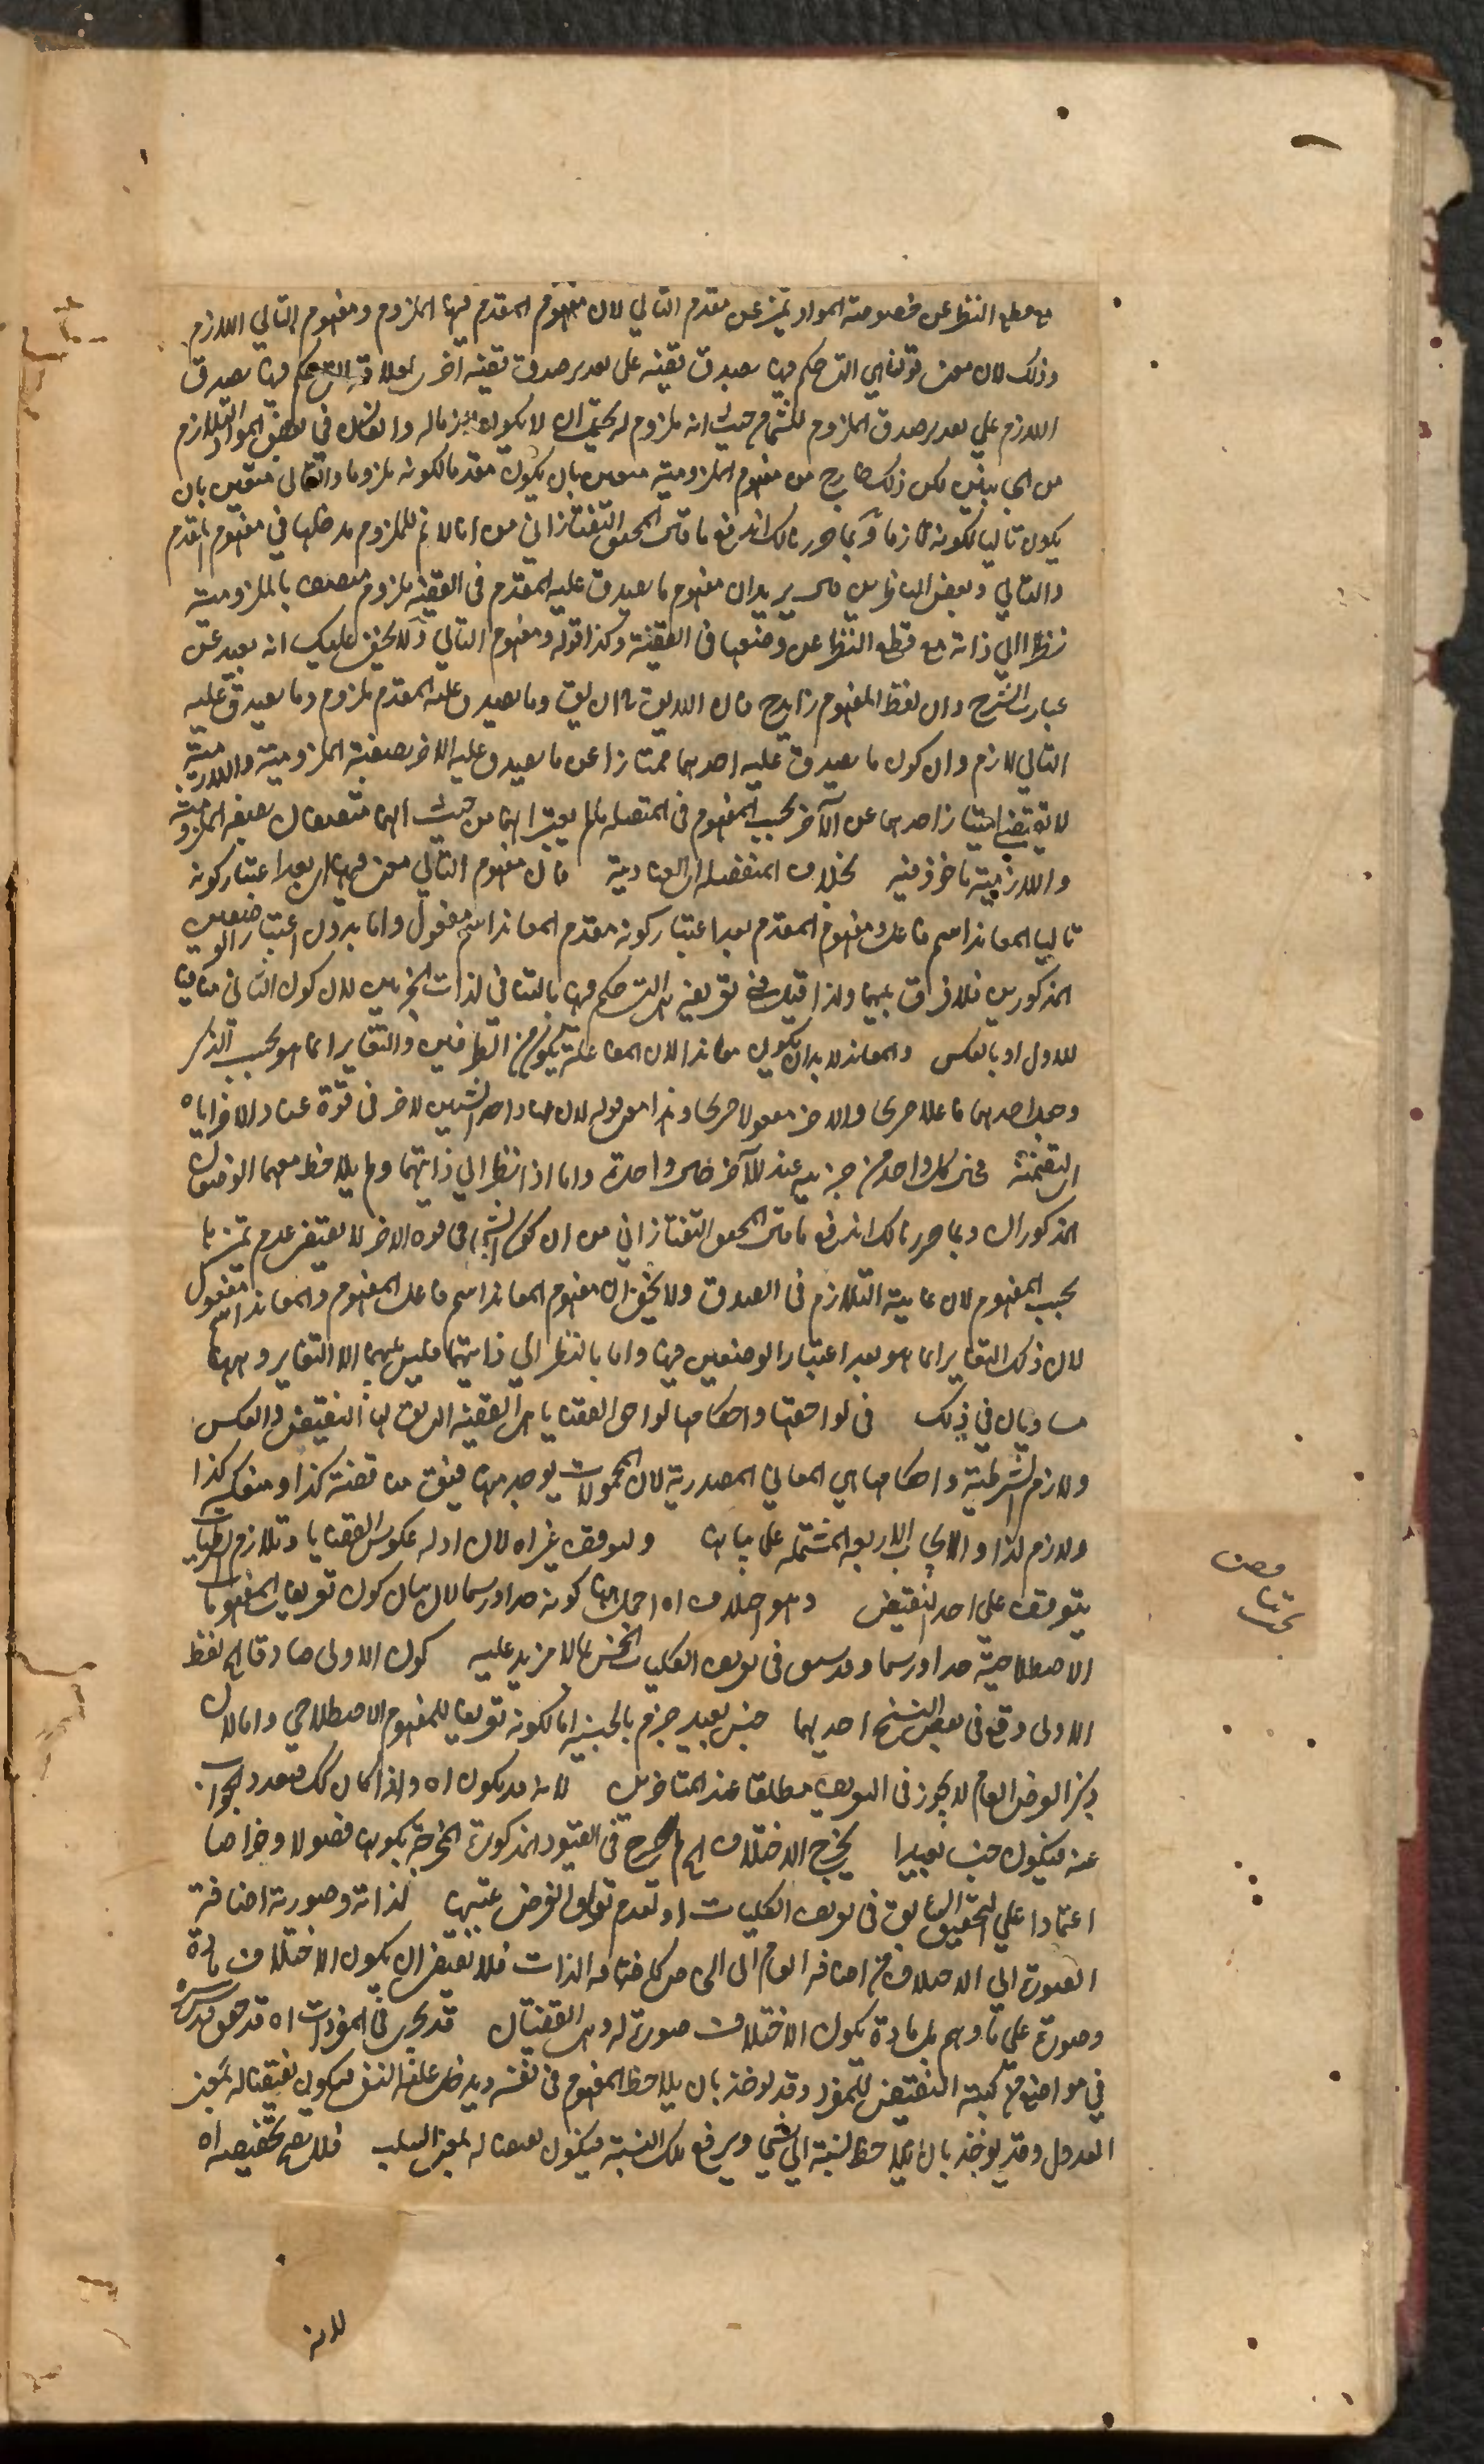 مع قطع النظر عن خصوصية المواد يتميز عن مقدم التالي لان مفهوم المقدم فيها الملزوم ومفهوم التالي اللازم
وذلك لان معنى قولنا هي التي حكم فيها بصدق قضية على تقدير صدق قضية اخرى لعلاقة التي حكم فيها بصدق
اللازم على تقدير صدق الملزوم للشيء من حيث انه ملزوم له يحتمل ان لا يكون لازما له وان كان في بعض المواد التلازم
من الجانبين لكن ذلك خارج من مفهوم الملزومية متعين بان يكون مقدما لكونه ملزوما والتالي متعين بان
يكون تاليا لكونه لازما وبما حررنا لك اندفع ما قال المحقق التفتازاني من انا لا نم للملزوم مدخلها في مفهوم المقدم
والتالي وبعض الناظرين يريد ان مفهوم ما يصدق عليه المقدم في القضية ملزوم متصف بالملزومية
نظرا الى ذاته مع قطع النظر عن وضعها في القضية وكذا قوله ومفهوم التالي ولا يخفى عليك انه بعيد عن
عبارة الشرح وان لفظ المفهوم زايد ح فان اللايق ح ان يق وما يصدق عليه المقدم ملزوم وما يصدق عليه
التالي لازم وان كون ما يصدق عليه احدهما ممتازا عن ما يصدق عليه الاخر بصفة الملزومية واللازمية
لا يقتضي امتياز احدهما عن الآخر بحسب المفهوم في المتصلة ما لم يعتبر انهما من حيث انهما متصفان بصفة الملزومية
واللازمية ماخوذ فيه بخلاف المنفصلة اي العنادية فان مفهوم التالي معنى فيها اي بعد اعتبار كونه
تاليا المعاند اسم فاعل ومفهوم المقدم بعد اعتبار كونه مقدم المعاند اسم مفعول واما بدون اعتبار الوضعين
المذكورين فلا فرق بينهما ولذا قيل في تعريفه التي حكم فيها بالتنافي لذات الجزئين لان كون الثاني منافيا
للاول او بالعكس والمعاند لا بد ان يكون معاندا لان المفاعلة تكون من الطرفين والتغاير انما هو بحسب الذكر
وجعل احدهما فاعلا صريحا والاخر مفعولا صريحا وهذا معنى قوله لان عناد احد الشيئين لاخر في قوة عناد الاخر اياه
فحال كل واحد من جزئيه عند الآخر حال واحدة واما اذا نظر الى ذاتيهما ولم يلاحظ معهما الوضعان
المذكوران وبما حررنا لك اندفع ما قال المحقق التفتازاني من ان كون الشيء في قوة الاخر لا يقتضي عدم تميزها
بحسب المفهوم لان غايته التلازم في الصدق ولا يخفى ان مفهوم المعاند اسم فاعل المفهوم والمعاند اسم مفعول
لان ذلك التغاير انما هو بعد اعتبار الوضعين فيها واما بالنظر الى ذاتيهما فليس بينهما الا التغاير وهما
مساويان في ذلك في لواحقها واحكامها لواحق القضايا هي القضية التي يقال لها النقيض والعكس
ولازم الشرطية واحكامها هي المعاني المصدرية لان المحمولات يوجد منها فيق هذه قضية كذا ومنعكسة كذا
ولازم كذا والابواب الاربعة المشتملة على بيان ولتوقف غيراه لان ادلة عكوس القضايا وتلازم الشرطيات
يتوقف على احد النقيض وهو اختلاف اه احمال هنا كونه حدا ورسما لان بيان كون تعريفات المفهومات
الاصطلاحية حدا ورسما وقد سبق في تعريف الكليات الخمس بما لا مزيد عليه كون الاولى صادقا الخ لفظ
الاولى وقع في بعض النسخ احديهما جنس بعيد جزم بالجنسية اما لكونه تعريفا للمفهوم الاصطلاحي واما لان
ذكر العرض العام لا يجوز في التعريف مطلقا عند المتاخرين لانه قد يكون اه واذا كان كك فتعدد الجواب
عنه فيكون جنسا بعيدا يخرج الاختلاف الخ لم يصرح في القيود المذكورة المخرجة بكونها فصولا وخواصا
اعتمادا على التحقيق السابق في تعريف الكليات او لعدم تعلق الغرض بتعيينها لذاته وصورته اضافة
الصورة الى الاختلاف من اضافة العام الى الخاص كاضافة الذات فلا يقتضي ان يكون الاختلاف مادة
وصورة على ما وهم بل مادة يكون الاختلاف صورة له وهي القضيتان قد يجري في المفردات اه قد حقق قدس سره
في مواضع من كتبه النقيض للمفرد وقد يوخذ بان يلاحظ المفهوم في نفسه ويدخل عليه النفي فيكون نقيضا له بمعنى
العدول وقد يوخذ بان يلاحظ نسبته الى شيء ويرفع تلك النسبة فيكون نقيضا له بمعنى السلب فلا يصح تخصيصه اه
لانه